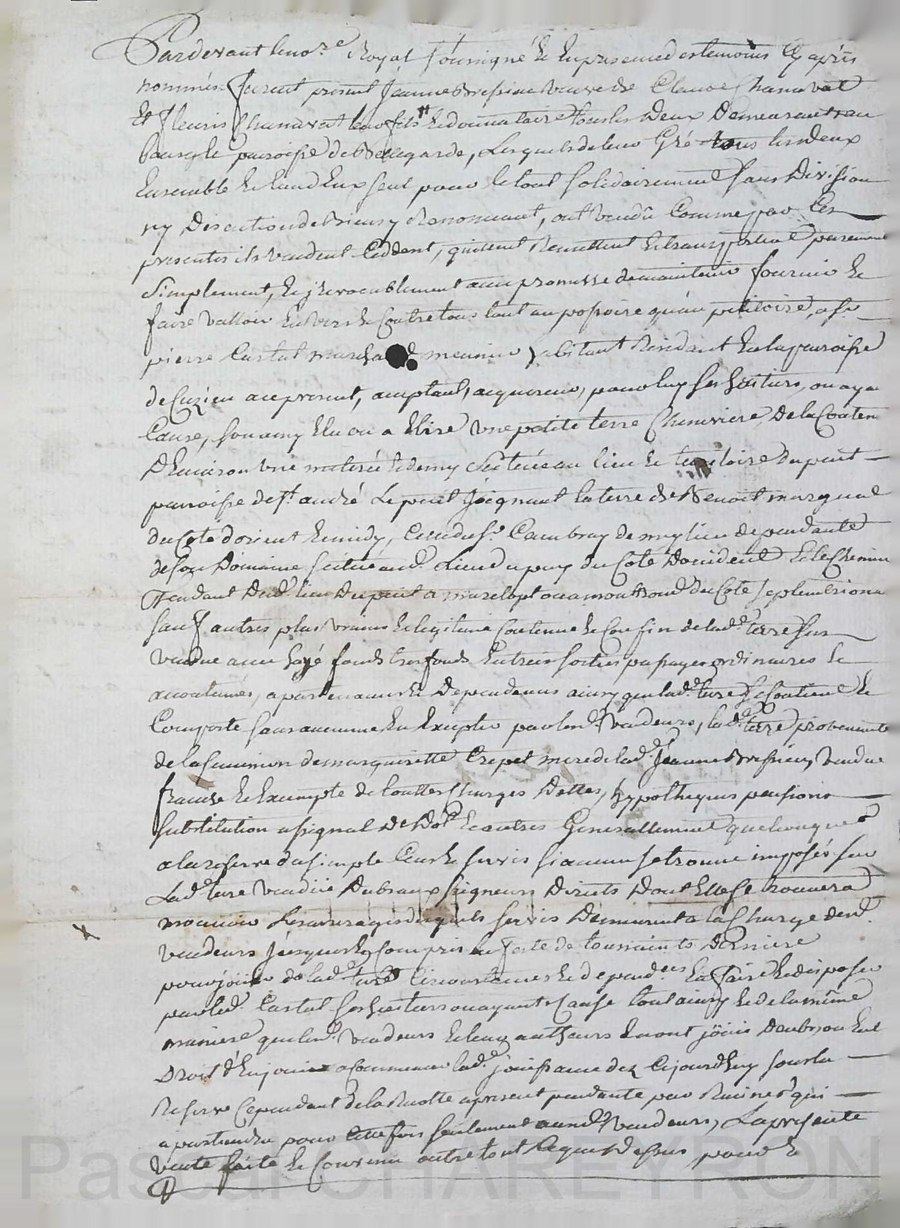 Pardevant le no.re Royal soussigné et en presence des temoins cy apres
nommés furent present Jeanne Bressieu veuve de Claude Chanavat
et fleuris Chanavat leur fils et donnataire tous les deux demeurant au
paroisse de Bellegarde, Lesquels de leur Gré tous les deux
Ensemble et Lun deux seul pour le tout solidairement sans Division
ny Discution de biens y Renoncant, ont vendû Comme par Ces
presentes ils vendent Cedent, quittent Remettent et transportent purement
simplement, et jrrevocablement avec promesse de maintenir fournir et
faire valloir Envers et Contre tous tant au possoire qu'au petitoire, a sr
pierre Cartal marchand meunier habitant Residant en la paroisse
de Cuzieu acy present, acceptant, acquereur, pour luy ses hoirs ou ayant
Cause, son amy Elu ou a Elire une petite terre Cheneviere, de la Conten
D'Environ une metérée et demy scituée au lieu et territoire du puit
paroisse de St. andré Le puit Joignant la terre de Benoit
du Coté d'orient et midy, Celle du Sr. Cambray de dependante
de son Domaine scitué aud. Lieu du puy du Coté D'occident Et le Chemin
tendant Dud. lieu du puit a ou a montrond du Coté septentrional
sauf autres plus vraies et legitime Contenue et Confin de lad.e terre sus
vendue avec fonds tres fonds Entrées sorties passages ordinaires et
acoutumés, apartenances et Dependences ainsy que lad.e terre se Contient et
Comporte sans aucunne En Excepter par lesd. vendeurs, lad.e terre provenante
de la succession de marguerite Crepet mere de lad.e Jeanne Bressieu, vendue
franche et Exempte de touttes charges Dettes, hypotheques pensions
substitution assignal de Dot et autres Generallement quelconques
a la reserve du simple Cens et servis si aucun se trouve imposés sur
Lad.e terre vendüe Dubs aux seigneurs Directs Dont Elle se trouvera
mouvoir Les arrerages desquels servis Demeurent a la Charge desd.
vendeurs jusques et Compris la feste de toussaints derniere
pour jouir de lad.e terre Circonstances et dependces En faire et disposer
par led. Cartal ses hoirs ou ayants Cause tout ainsy et de la même
maniere que lesd. vendeurs et leurs autheurs En ont jöuis Deub ou Eut
Droit d'En jouir a Commencer lad.e jouissance dez Cejourdhuy sous la
Reserve Cependant de la Recolte a present pendante par Racines qui
apartiendra pour Cette fois seulement auxd. vendeurs, La presente
vente faite et Convenu outre tout Ce que Dessus pour et
Pascal CHAREYRON